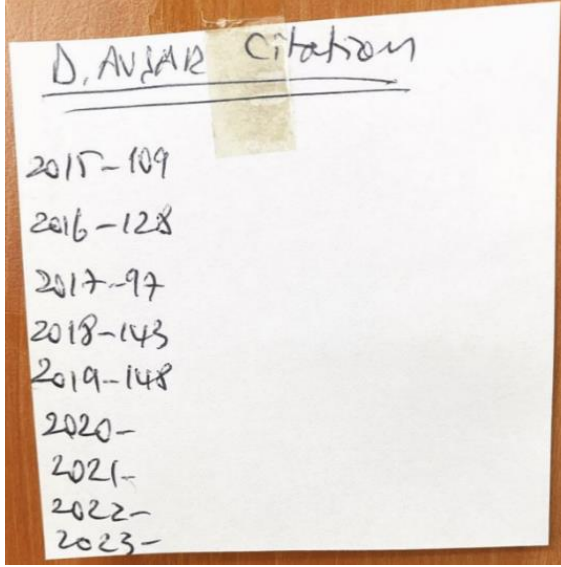 D. AVŞAR Citation
2015-109
2016-128
2017-97
2018-143
2019-148
2020-
2021-
2022-
2023-